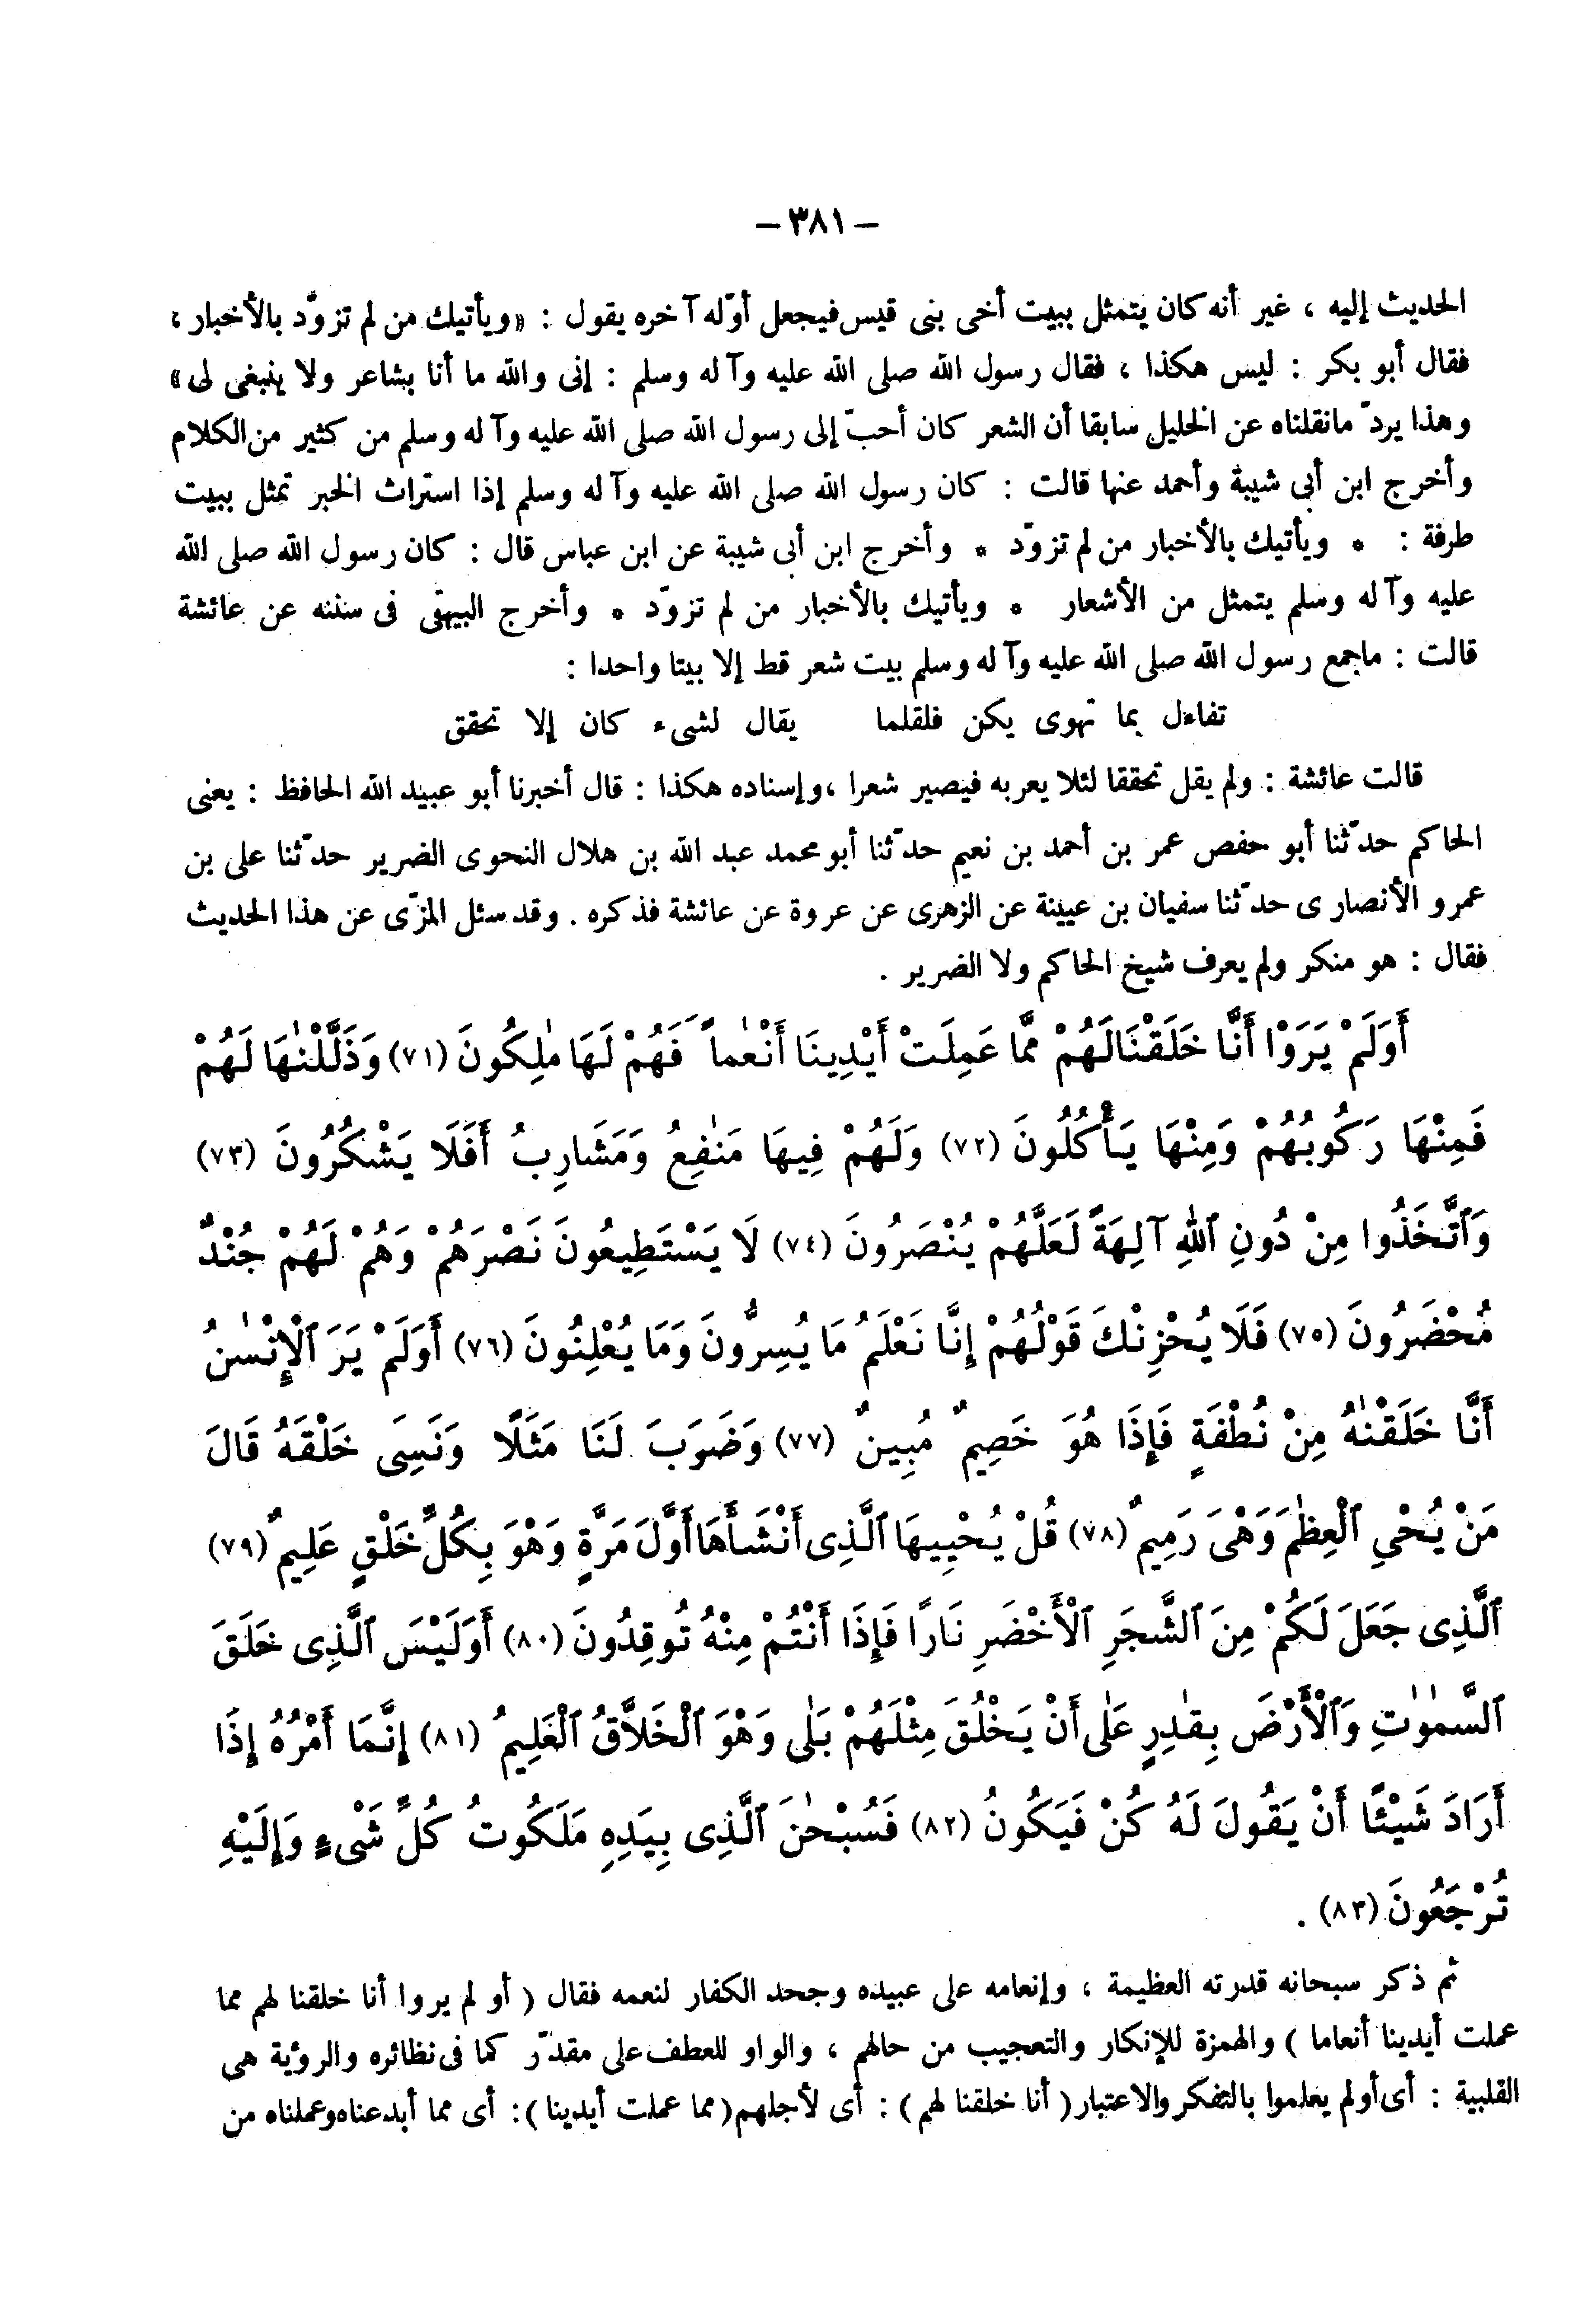 – ٣٨١ –
الحديث إليه ، غير أنه كان يتمثل ببيت أخى بنى قيس فيجعل أوّله آخره يقول : «ويأتيك من لم تزوّد بالأخبار ،
فقال أبو بكر : ليس هكذا ، فقال رسول الله صلى الله عليه وآله وسلم : إنى والله ما أنا بشاعر ولا ينبغى لى»
وهذا يردّ مانقلناه عن الخليل سابقا أن الشعر كان أحبّ إلى رسول الله صلى الله عليه وآله وسلم من كثير من الكلام
وأخرج ابن أبى شيبة وأحمد عنها قالت : كان رسول الله صلى الله عليه وآله وسلم إذا استراث الخبر تمثل ببيت
طرفة : * ويأتيك بالأخبار من لم تزوّد * وأخرج ابن أبى شيبة عن ابن عباس قال : كان رسول الله صلى الله
عليه وآله وسلم يتمثل من الأشعار * ويأتيك بالأخبار من لم تزوّد * وأخرج البيهقى فى سننه عن عائشة
قالت : ماجمع رسول الله صلى الله عليه وآله وسلم بيت شعر قط إلا بيتا واحدا :
تفاءل بما تهوى يكن فلقلما يقال لشىء كان إلا تحقق
قالت عائشة : ولم يقل تحققا لئلا يعربه فيصير شعرا ، وإسناده هكذا : قال أخبرنا أبو عبيد الله الحافظ : يعنى
الحاكم حدّثنا أبو حفص عمر بن أحمد بن نعيم حدّثنا أبو محمد عبد الله بن هلال النحوى الضرير حدّثنا على بن
عمرو الأنصارى حدّثنا سفيان بن عيينة عن الزهرى عن عروة عن عائشة فذكره . وقد سئل المزّى عن هذا الحديث
فقال : هو منكر ولم يعرف شيخ الحاكم ولا الضرير .
أَوَلَمْ يَرَوْا أَنَّا خَلَقْنَا لَهُمْ مِمَّا عَمِلَتْ أَيْدِينَا أَنْعٰماً فَهُمْ لَهَا مٰلِكُونَ (٧١) وَذَلَّلْنٰهَا لَهُمْ
فَمِنْهَا رَكُوبُهُمْ وَمِنْهَا يَأْكُلُونَ (٧٢) وَلَهُمْ فِيهَا مَنٰفِعُ وَمَشَارِبُ أَفَلَا يَشْكُرُونَ (٧٣)
وَٱتَّخَذُوا مِنْ دُونِ ٱللهِ آلِهَةً لَعَلَّهُمْ يُنْصَرُونَ (٧٤) لَا يَسْتَطِيعُونَ نَصْرَهُمْ وَهُمْ لَهُمْ جُنْدٌ
مُحْضَرُونَ (٧٥) فَلَا يُحْزِنْكَ قَوْلُهُمْ إِنَّا نَعْلَمُ مَا يُسِرُّونَ وَمَا يُعْلِنُونَ (٧٦) أَوَلَمْ يَرَ ٱلْإِنْسٰنُ
أَنَّا خَلَقْنٰهُ مِنْ نُطْفَةٍ فَإِذَا هُوَ خَصِيمٌ مُبِينٌ (٧٧) وَضَرَبَ لَنَا مَثَلًا وَنَسِىَ خَلْقَهُ قَالَ
مَنْ يُحْىِ ٱلْعِظٰمَ وَهْىَ رَمِيمٌ (٧٨) قُلْ يُحْيِيهَا ٱلَّذِى أَنْشَأَهَا أَوَّلَ مَرَّةٍ وَهْوَ بِكُلِّ خَلْقٍ عَلِيمٌ (٧٩)
ٱلَّذِى جَعَلَ لَكُمْ مِنَ ٱلشَّجَرِ ٱلْأَخْضَرِ نَارًا فَإِذَا أَنْتُمْ مِنْهُ تُوقِدُونَ (٨٠) أَوَلَيْسَ ٱلَّذِى خَلَقَ
ٱلسَّمٰوٰتِ وَٱلْأَرْضَ بِقٰدِرٍ عَلٰى أَنْ يَخْلُقَ مِثْلَهُمْ بَلٰى وَهْوَ ٱلْخَلَّاقُ ٱلْعَلِيمُ (٨١) إِنَّمَا أَمْرُهُ إِذَا
أَرَادَ شَيْئًا أَنْ يَقُولَ لَهُ كُنْ فَيَكُونُ (٨٢) فَسُبْحٰنَ ٱلَّذِى بِيَدِهِ مَلَكُوتُ كُلِّ شَىْءٍ وَإِلَيْهِ
تُرْجَعُونَ (٨٣) .
ثم ذكر سبحانه قدرته العظيمة ، وإنعامه على عبيده وجحد الكفار لنعمه فقال ( أو لم يروا أنا خلقنا لهم مما
عملت أيدينا أنعاما ) والهمزة للإنكار والتعجيب من حالهم ، والواو للعطف على مقدّر كما فى نظائره والرؤية هى
القلبية : أى أولم يعلموا بالتفكر والاعتبار ( أنا خلقنا لهم ) : أى لأجلهم ( مما عملت أيدينا ) : أى مما أبدعناه وعملناه من